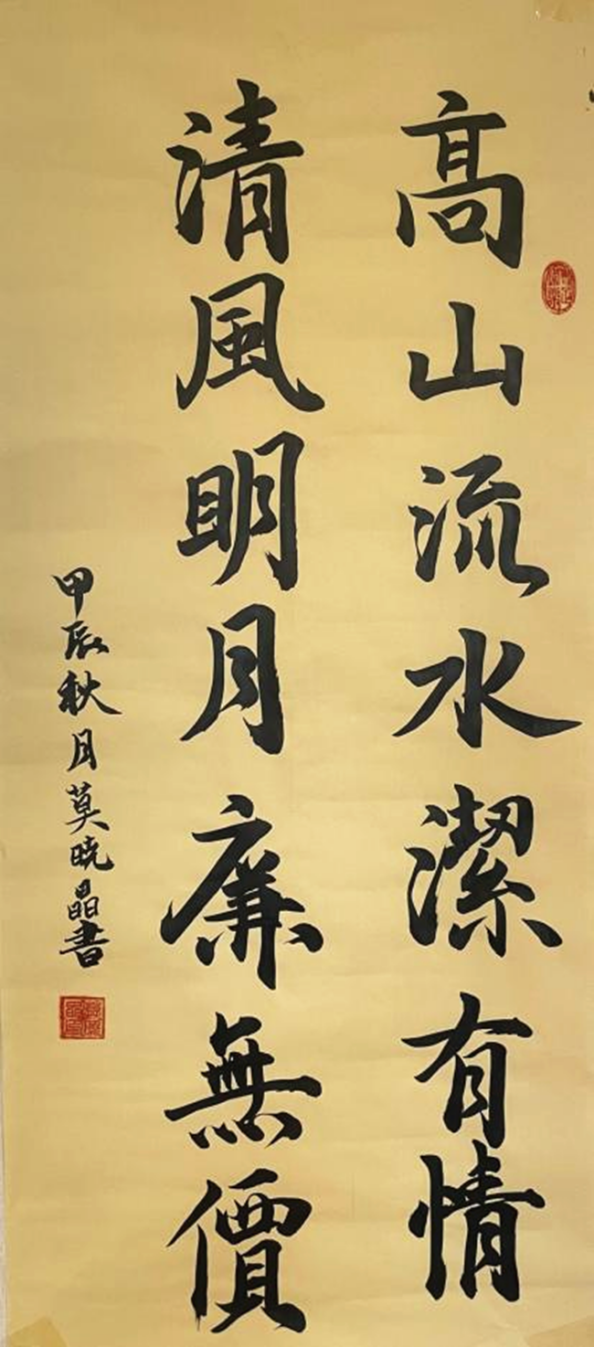 高山流水潔有情
清風明月廉無價
甲辰秋月莫曉晶書